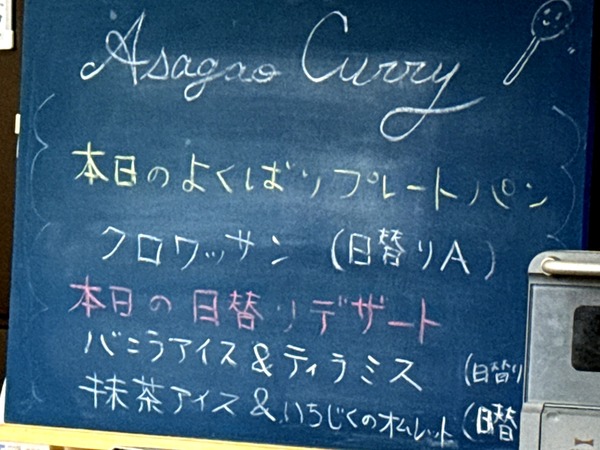 Asagao Curry
本日のよくばりプレートパン
クロワッサン (日替りA)
本日の日替りデザート
バニラアイス&ティラミス (日替り
抹茶アイス&いちじくのオムレット (日替